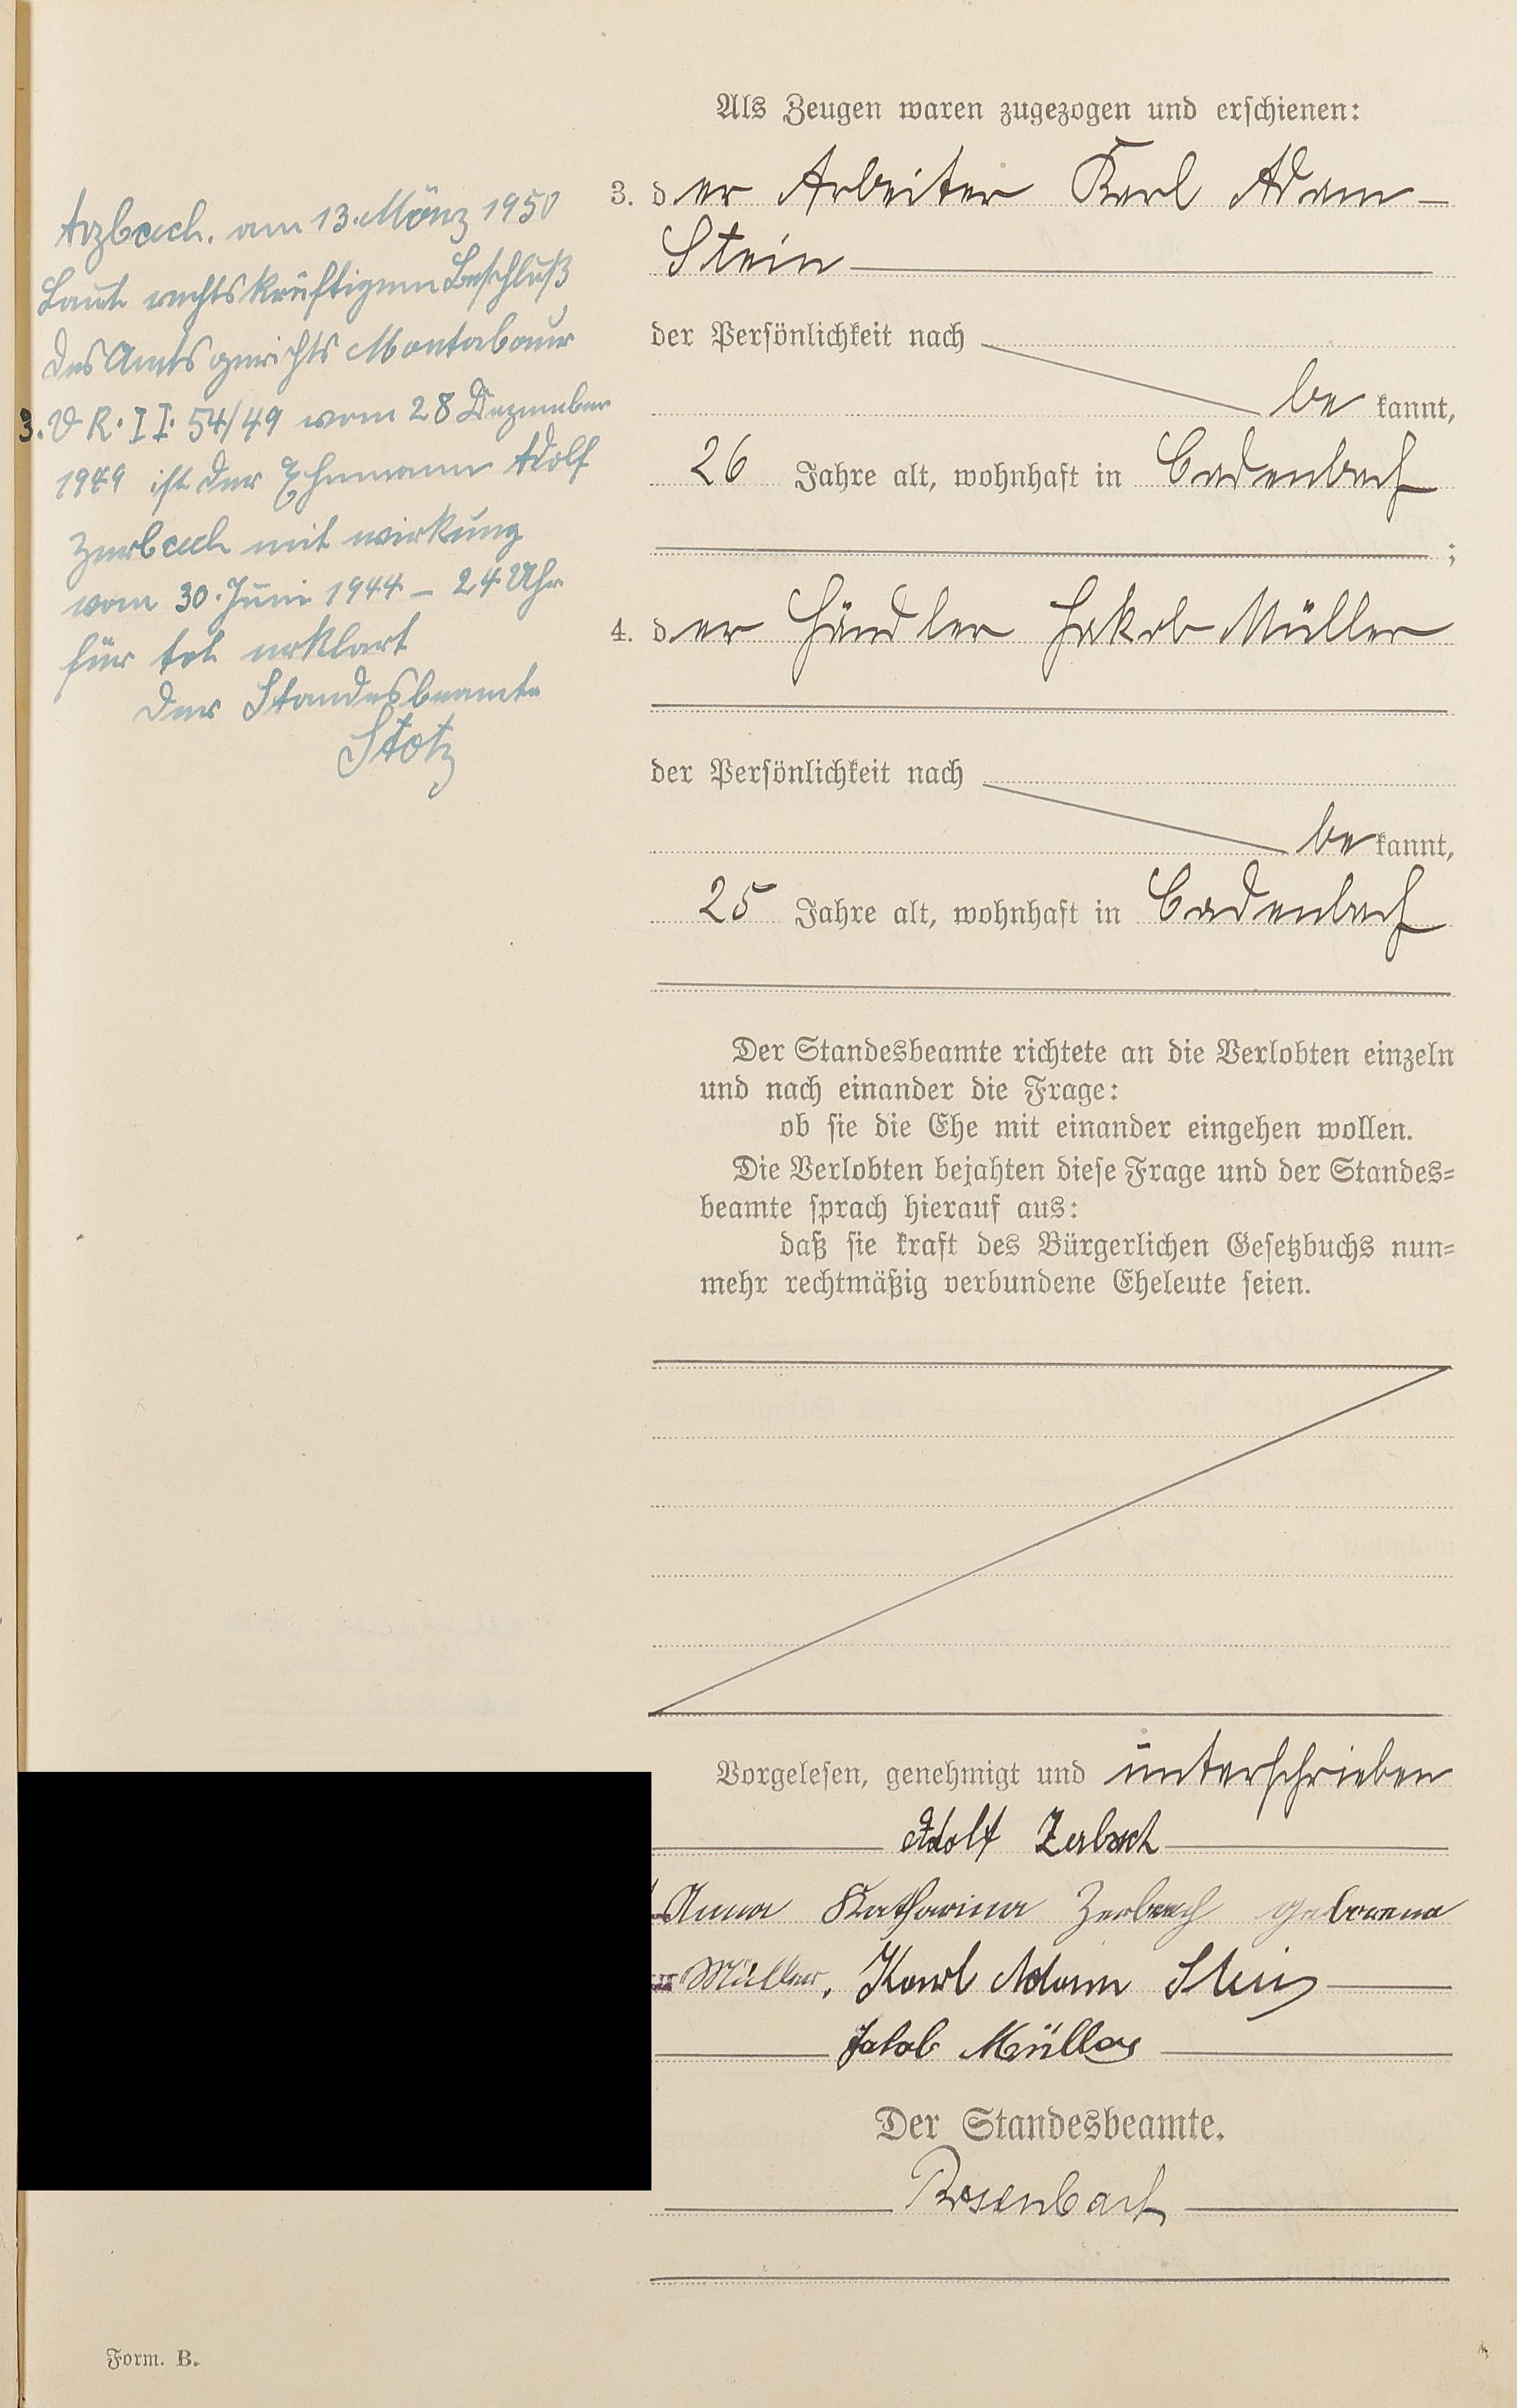 Arzbach. am 13. März 1950
Laut rechtskräftigem Beschluß
des Amtsgerichts Montabaur
3. V R. II. 54/49 vom 28 Dezember
1949 ist der Ehemann Adolf
Zerbach mit wirkung
vom 30. Juni 1944 – 24 Uhr
für tot erklärt
Der Standesbeamte
Stotz
Als Zeugen waren zugezogen und erschienen:
3. der Arbeiter Karl Adam
Stein
der Persönlichkeit nach
be kannt,
26 Jahre alt, wohnhaft in Cadenbach
;
4. der Händler Jakob Müller
der Persönlichkeit nach
be kannt,
25 Jahre alt, wohnhaft in Cadenbach
Der Standesbeamte richtete an die Verlobten einzeln
und nach einander die Frage:
ob sie die Ehe mit einander eingehen wollen.
Die Verlobten bejahten diese Frage und der Standes=
beamte sprach hierauf aus:
daß sie kraft des Bürgerlichen Gesetzbuchs nun=
mehr rechtmäßig verbundene Eheleute seien.
Vorgelesen, genehmigt und unterschrieben
Adolf Zerbach
Anna Katharina Zerbach geborene
Müller, Karl Adam Stein
Jakob Müller
Der Standesbeamte.
Rosenbach
Form. B.